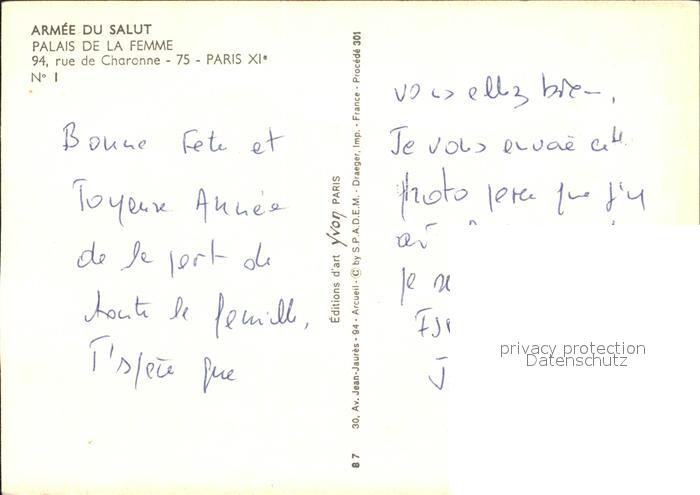 ARMÉE DU SALUT
PALAIS DE LA FEMME
94, rue de Charonne - 75 - PARIS XIe
N° 1
Bonne Fête et
Joyeuse Année
de la part de
toute la famille,
J'espère que
Éditions d'art yvon PARIS
30, Av. Jean-Jaurès - 94 - Arcueil - © by S.P.A.D.E.M. - Draeger, Imp. - France - Procédé 301
87
vous allez bien,
Je vous envoie cette
photo parce que j'y
je
J
privacy protection
Datenschutz